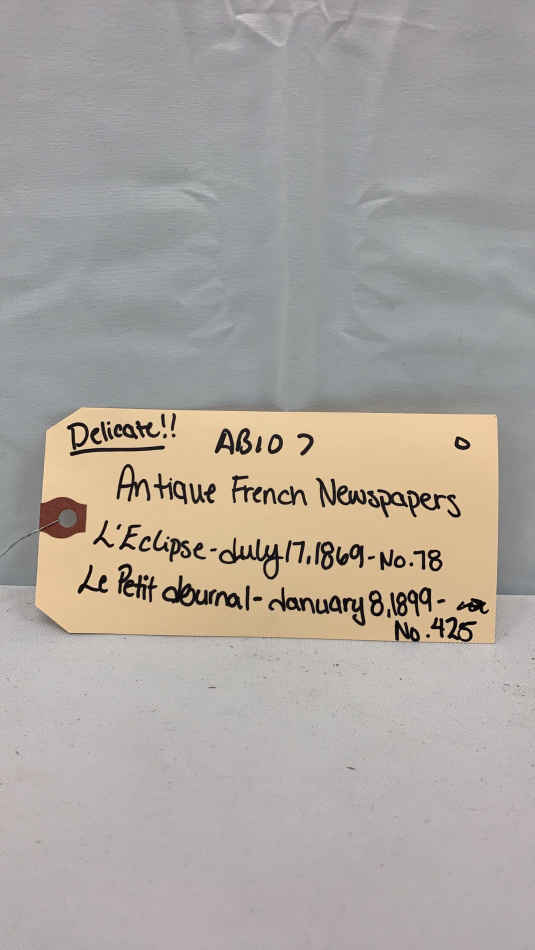 Delicate!! AB107 D
Antique French Newspapers
L'Eclipse-July 17, 1869-No.78
Le Petit Journal-January 8, 1899-
No.425